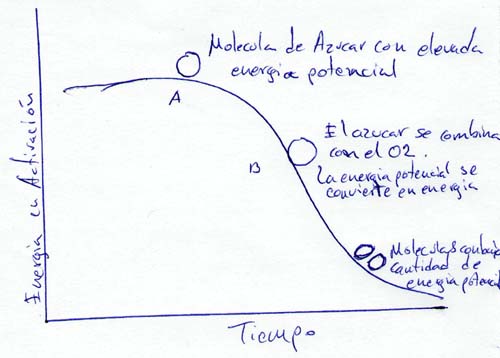 Molecola de Azucar con elevada
energia potencial
A
El azucar se combina
con el O2.
La energia potencial se
convierte en energia
B
Moleculas con baja
cantidad de
energia potencial
Energia en Activación
Tiempo